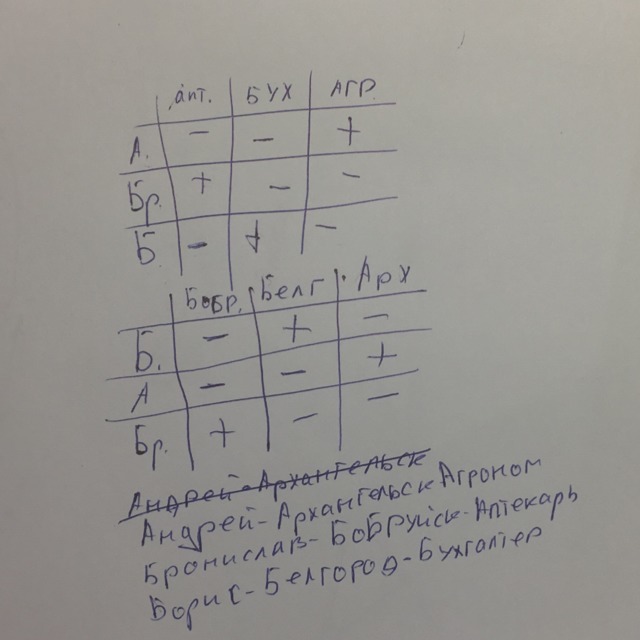 апт. БУХ АГР.
А. - - +
Бр. + - -
Б - + -
Бобр. Белг. Арх
Б. - + -
А - - +
Бр. + - -
Андрей-Архангельск
Андрей-Архангельск Агроном
Бронислав-Бобруйск-Аптекарь
Борис-Белгород-Бухгалтер